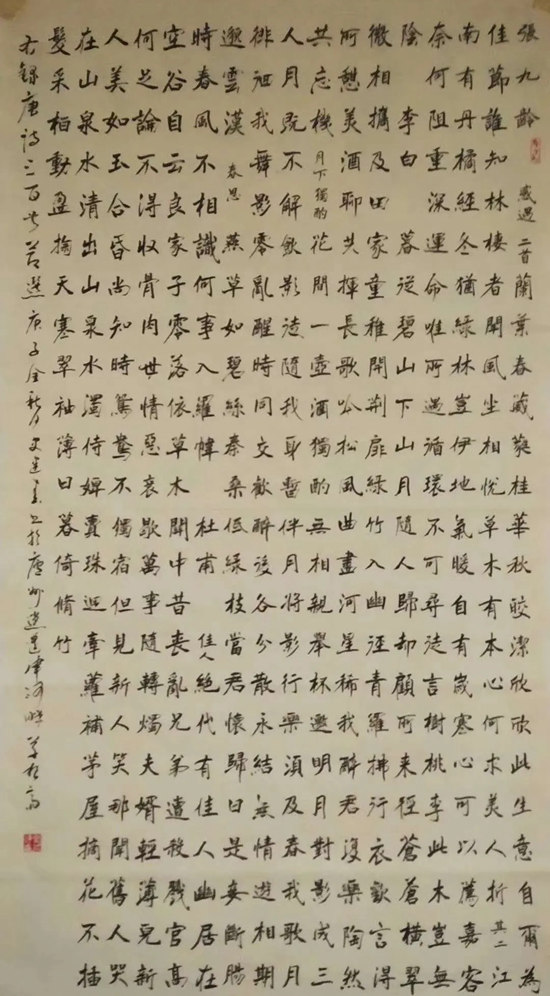 張九齡 感遇二首 蘭葉春葳蕤桂華秋皎潔欣欣此生意自爾為
佳節誰知林棲者聞風坐相悅草木有本心何求美人折 其二 江
南有丹橘經冬猶綠林豈伊地氣暖自有歲寒心可以薦嘉客
奈何阻重深運命唯所遇循環不可尋徒言樹桃李此木豈無
陰 李白 暮從碧山下山月隨人歸却顧所来徑蒼蒼橫翠
微相攜及田家童稚開荊扉綠竹入幽逕青羅拂行衣歡言得
所憩美酒聊共揮長歌吟松風曲盡河星稀我醉君復樂陶然
共忘機 月下獨酌 花間一壺酒獨酌無相親舉杯邀明月對影成三
人月既不解飲影徒隨我身暫伴月將影行樂須及春我歌月
徘徊我舞影零亂醒時同交歡醉後各分散永結無情遊相期
邈雲漢 春思 燕草如碧絲秦桑低綠枝當君懷歸日是妾斷腸
時春風不相識何事入羅幃 杜甫 佳人 絕代有佳人幽居在
空谷自云良家子零落依草木關中昔喪亂兄弟遭殺戮官高
何足論不得收骨肉世情惡衰歇萬事隨轉燭夫婿輕薄兒新
人美如玉合昏尚知時鴛鴦不獨宿但見新人笑那聞舊人哭
在山泉水清出山泉水濁侍婢賣珠迴牽蘿補茅屋摘花不插
髮采栢動盈掬天寒翠袖薄日暮倚脩竹
右錄唐詩三百首選庚子金秋月於州津河畔草